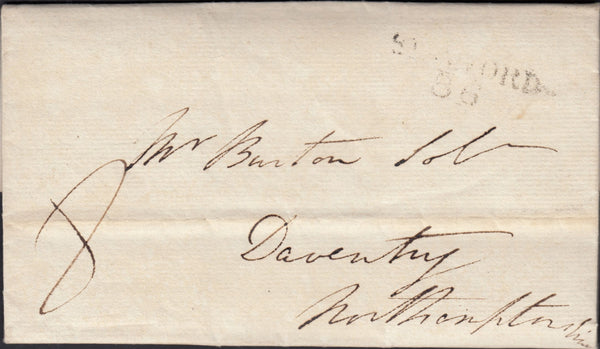 86
Mr Burton Solr
8
Daventry
Northamptonshire